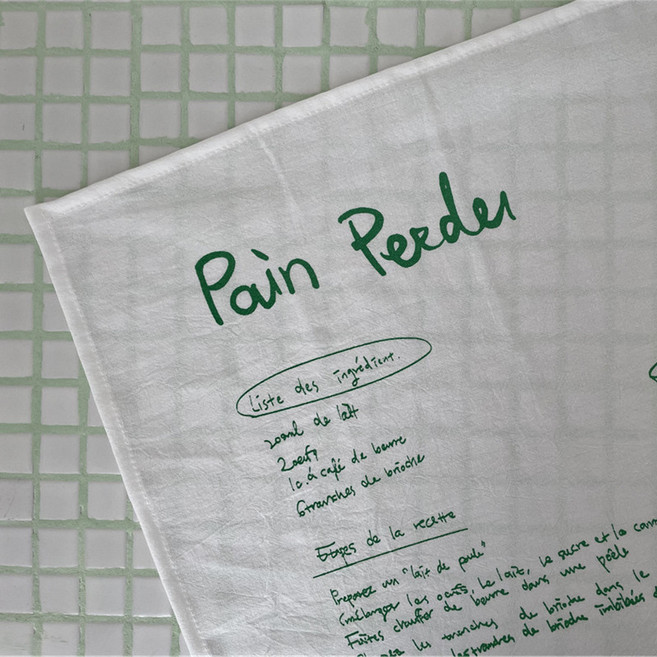 Pain Perdu
Liste des ingrédient.
200ml de lait
2 oeufs
1c.à café de beurre
6 tranches de brioche
Etapes de la recette
Preparez un "lait de poule"
(mélangez les oeufs, le lait, le sucre et la
Faites chauffer de beurre dans une poêle
les tranches de brioche dans le
les tranches de brioche imbibées